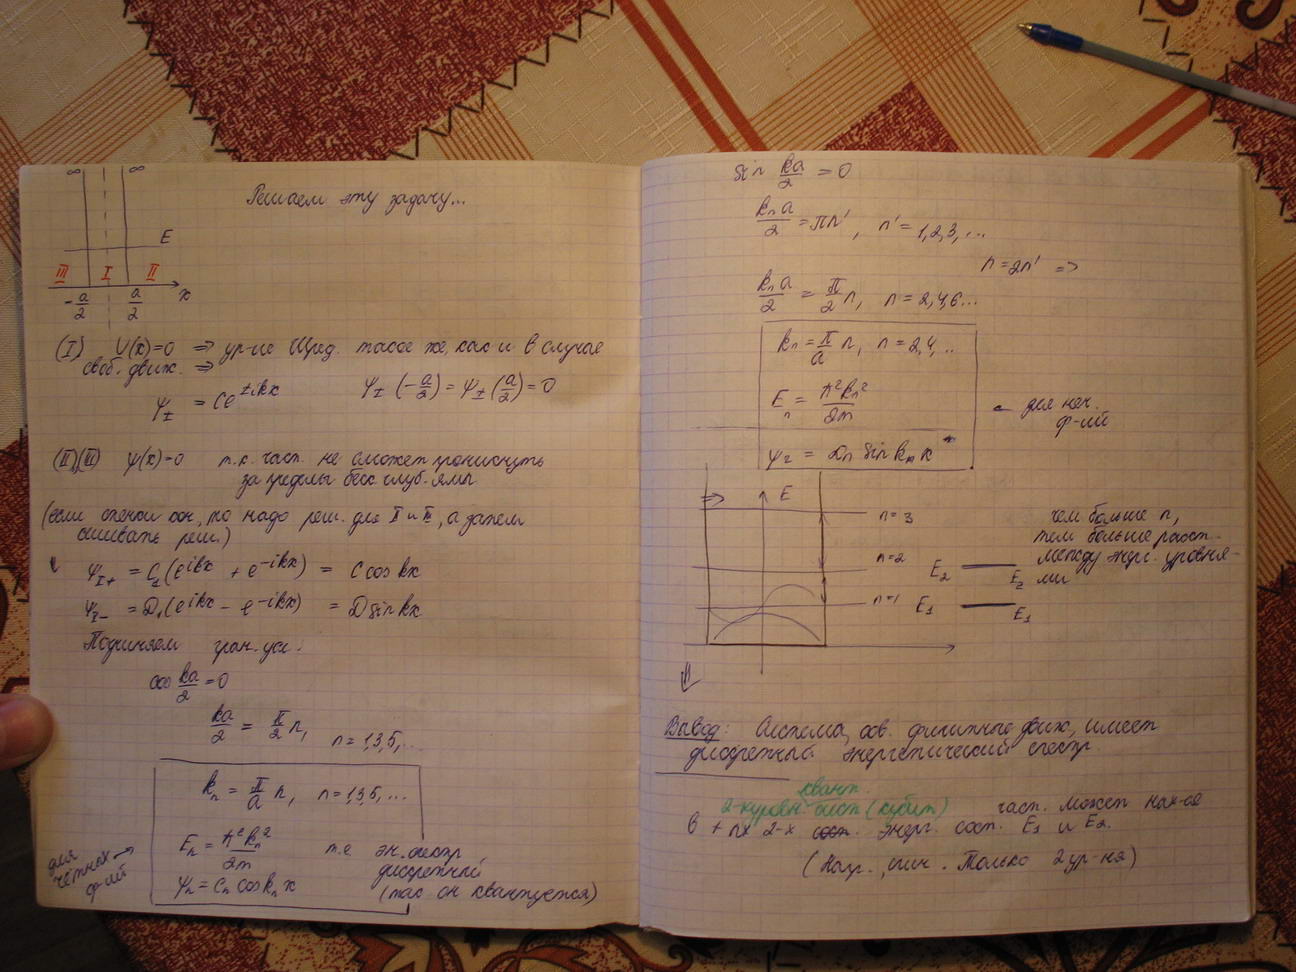 ∞ ∞
Решаем эту задачу...
E
III I II
-a/2 a/2 x
(I) U(x)=0 ⇒ ур-ие Шрёд. такое же, как и в случае
своб. движ. ⇒
ψ_I = Ce^{±ikx} ψ_I(-a/2) = ψ_I(a/2) = 0
(II),(III) ψ(x)=0 т.к. част. не сможет проникнуть
за пределы беск. глуб. ямы
(если стенки кон., то надо реш. для II и III, а затем
сшивать реш.)
ψ_{I+} = C_1(e^{ikx} + e^{-ikx}) = C cos kx
ψ_{I-} = D_1(e^{ikx} - e^{-ikx}) = D sin kx
Подчиняем гран. усл.:
cos ka/2 = 0
ka/2 = π/2 n, n=1,3,5,...
k_n = π/a n, n=1,3,5,...
E_n = ħ²k_n²/2m т.е. эн. спектр
дискретный
ψ_n = C_n cos k_n x (так он квантуется)
для
чётных
ф-ий →
sin ka/2 = 0
k_n a/2 = πn', n' = 1,2,3,...
n = 2n' ⇒
k_n a/2 = π/2 n, n = 2,4,6...
k_n = π/a n, n = 2,4,..
E_n = ħ²k_n²/2m
← для неч.
ф-ий
ψ_2 = D_n sin k_n x
⇒ E
n=3
n=2
n=1
E_2 E_2
E_1 E_1
чем больше n,
тем больше расст.
между энерг. уровня-
ми
Вывод: Система, сов. финитное движ., имеет
дискретный энергетический спектр.
квант.
2-хуровн. сист (кубит) част. может нах-ся
в 2-х сост. энерг. сост. E_1 и E_2.
(Напр., спин. Только 2 ур-ня)